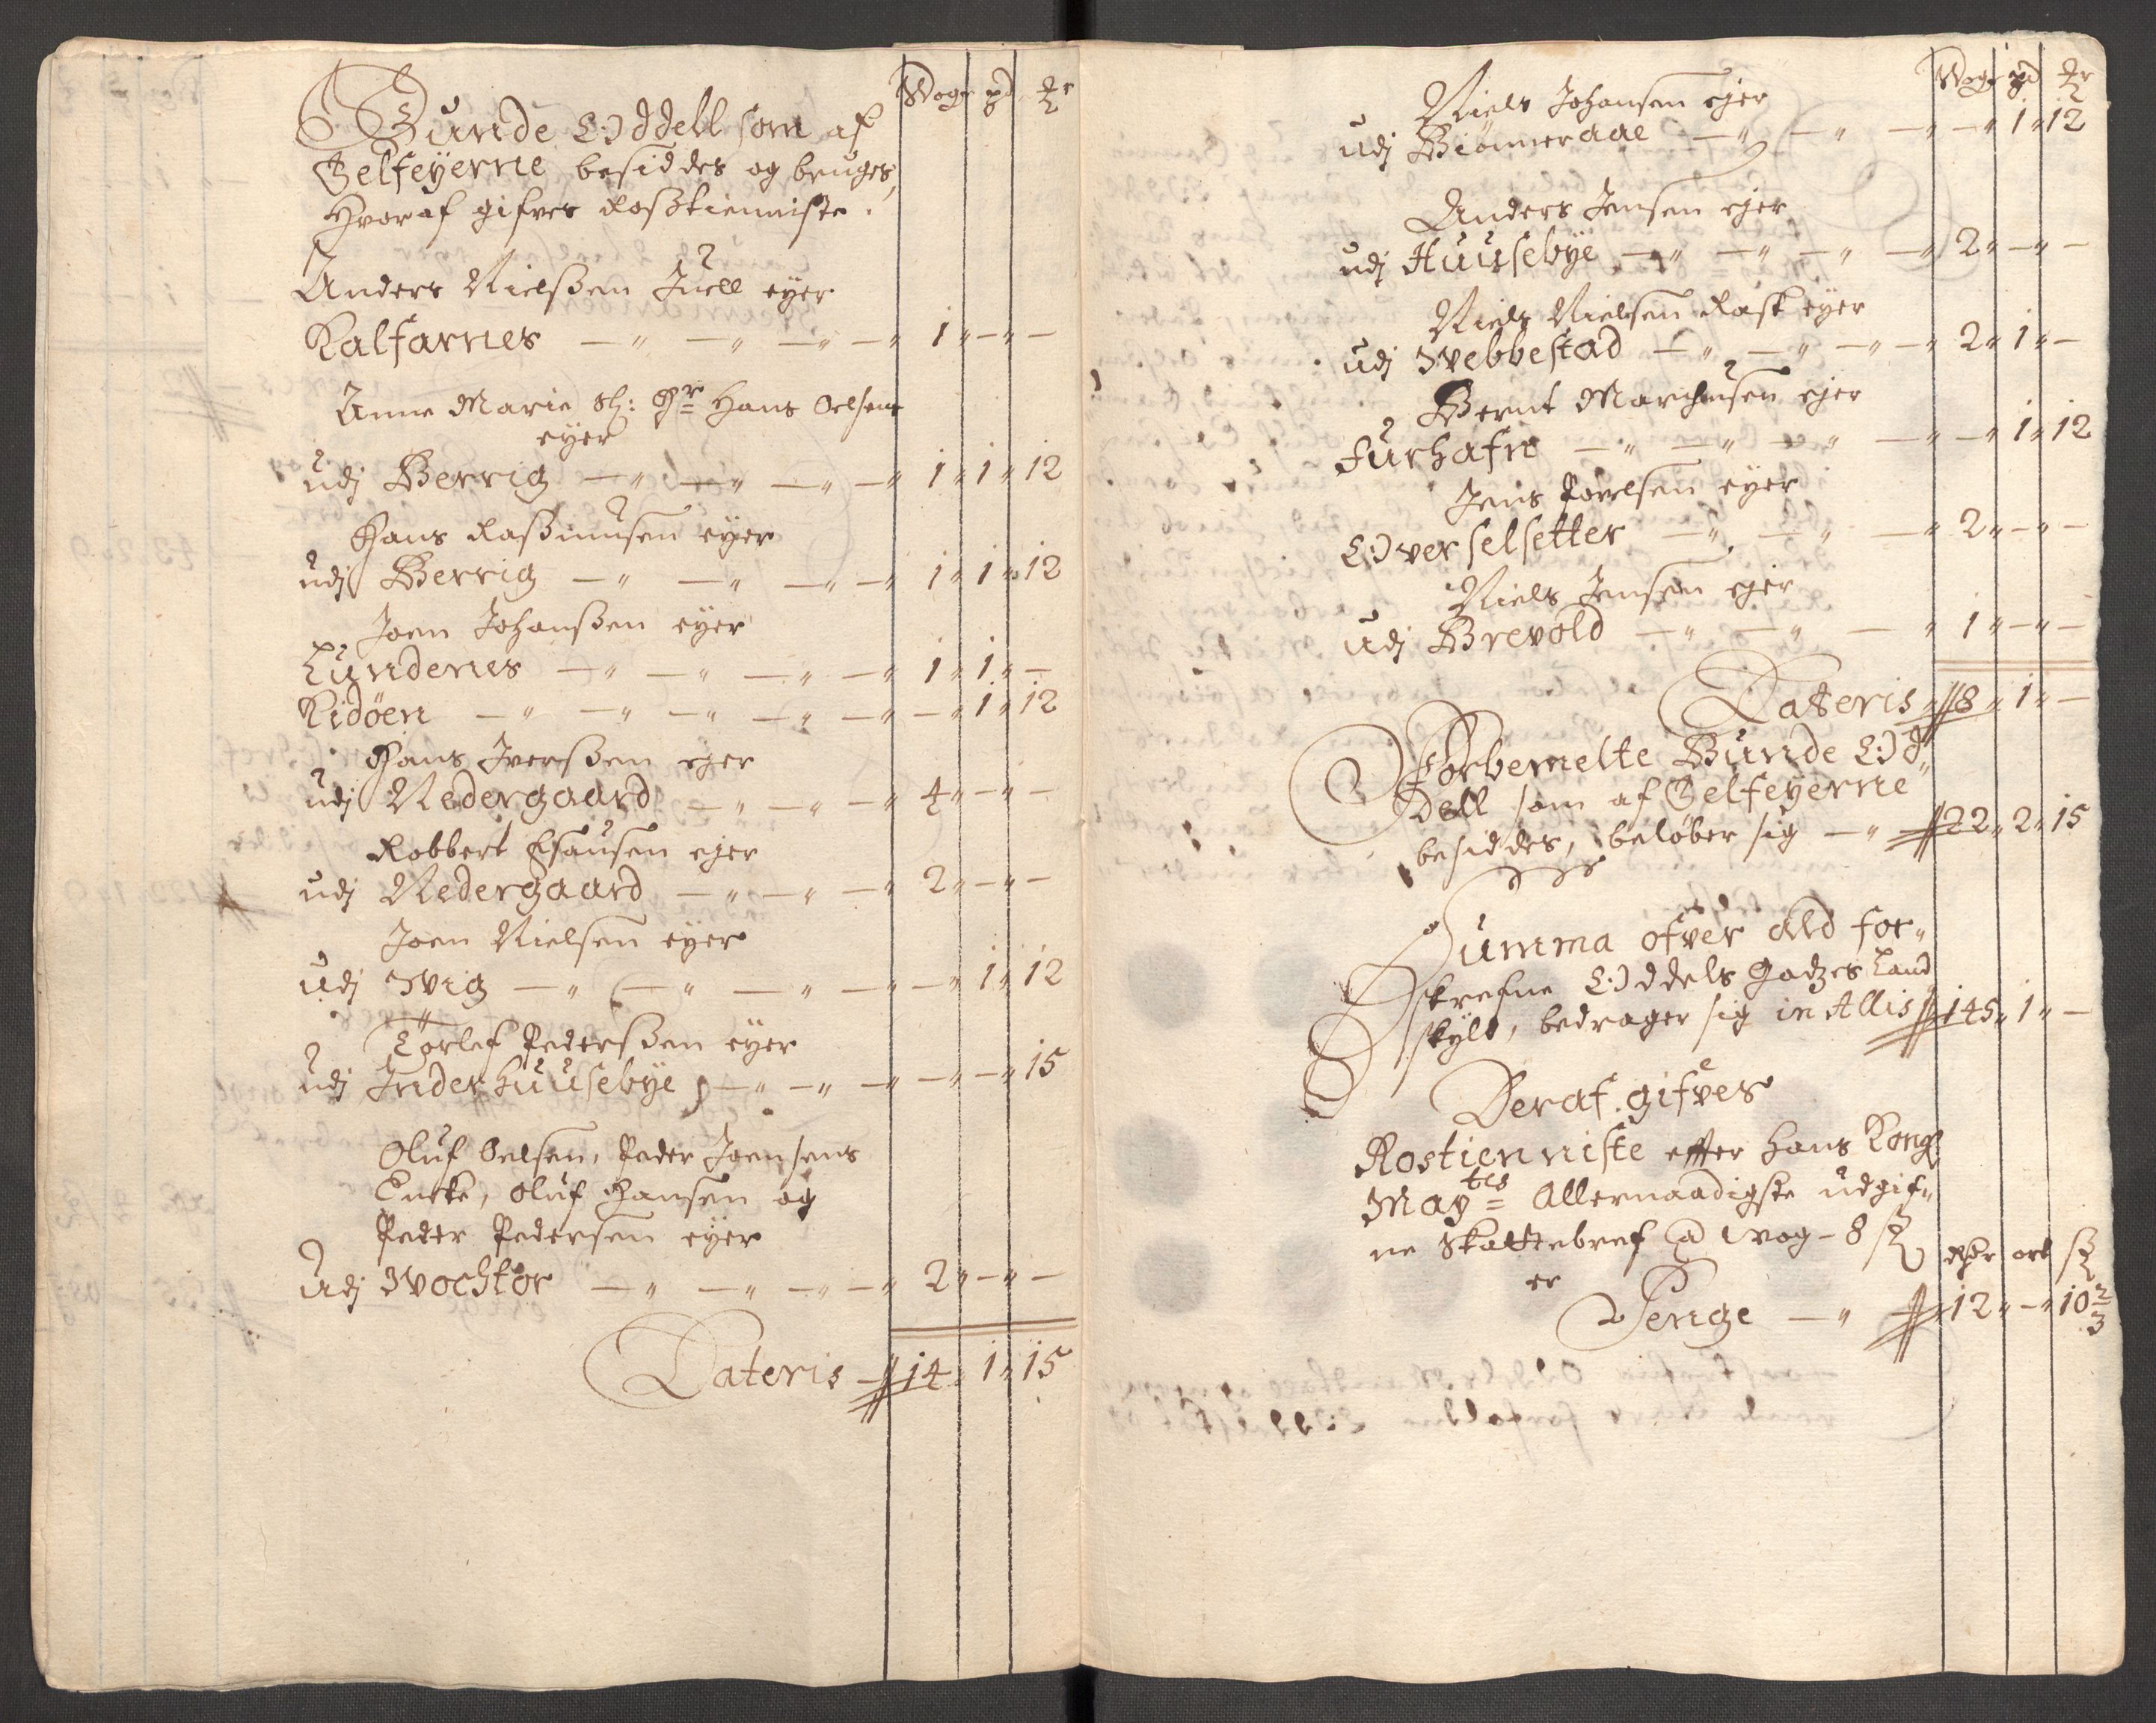 Wog pd ℔r
Bunde Oddell som af
Selfeyerne besiddes og bruges,
Hvoraf gifves Rosstienniste.
Anders Nielssen Juell eyer
Kalfarnes — " — " — " — " 1 " — " —
Anne Marie Sl: Hr Hans Oelsens
eyer
udj Berrig — " — " — " — " 1 " 1 " 12
Hans Rassmusen eyer
udj Berrig — " — " — " — " 1 " 1 " 12
Joen Johanssen eyer
Lundenes — " — " — " — " 1 " 1 " —
Kidøen — " — " — " — " — " — " 1 " 12
Hans Iverssen eyer
udj Nedergaard — " — " — " 4 " — " —
Robbert Esausen eyer
udj Nedergaard — " — " — " 2 " — " —
Joen Nielsen eyer
udj Wig — " — " — " — " — " 1 " 12
Tørlef Pederssen eyer
udj Inderhuusebye — " — " — " — " — " 15
Oluf Oelsen, Peder Joensens
Encke, Oluf Hansen og
Peder Pedersen eyer
Udj Wochtør — " — " — " — " 2 " — " —
Lateris — 14 " 1 " 15
Wog pd ℔r
Niels Johansen ejer
udj Biønneraae — " — " — " — " 1 " 12
Anders Jensen ejer
udj Huusebye — " — " — " — " 2 " — " —
Niels Nielsen Rask eyer
udj Webbestad — " — " — " — " 2 " 1 " —
Bernt Marchusen ejer
Furhafn — " — " — " — " — " 1 " 12
Jens Povelsen eyer
Overselsetter — " — " — " 2 " — " —
Niels Jensen ejer
udj Brevold — " — " — " 1 " — " —
Lateris 8 " 1 " —
Forbemelte Bunde Od"
Dell som af Selfeyerne
besiddes, beløber sig — " 22 " 2 " 15
Summa ofver ald for"
skrefne Oddels Godzes Land
skyld, bedrager sig in Allis 145 " 1 " —
Deraf gifves
Rostienniste effter Hans Kongl
Maytes Allernaadigste udgif"
ne Skattebref @ wog - 8 ß
Rdr ort ß
er
Penge — " 12 " — " 10 2/3